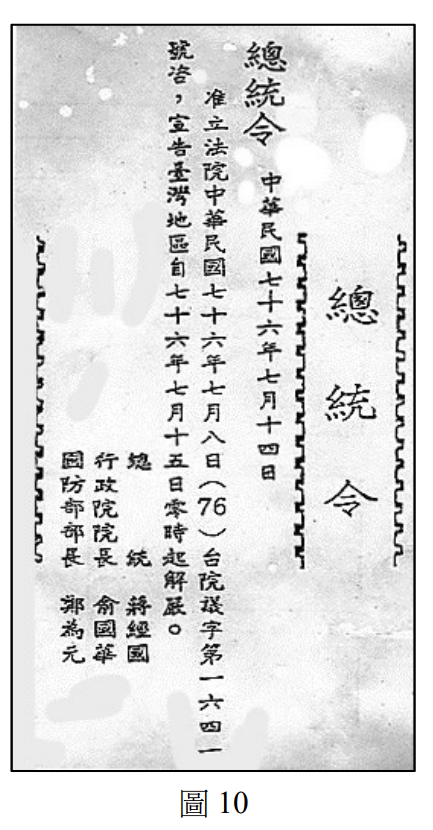 總統令
總統令 中華民國七十六年七月十四日
准立法院中華民國七十六年七月八日(76)台院議字第一六四一
號咨，宣告臺灣地區自七十六年七月十五日零時起解嚴。
總統 蔣經國
行政院院長 俞國華
國防部部長 鄭為元
圖 10